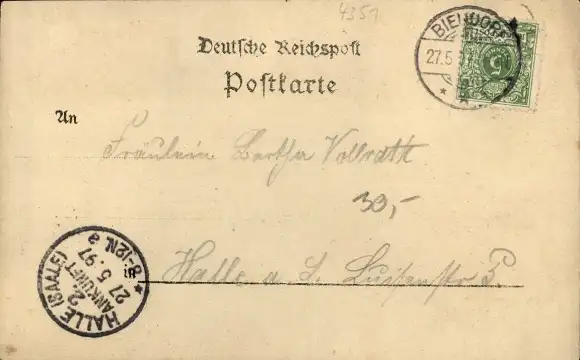 4351
Deutsche Reichspost
Postkarte
BIENDORF
27.5
5
An
Fräulein Bertha Vollrath
30,-
in Halle a. S. Luisenstr
HALLE (SAALE)
2
ANKUNFT
27 5. 97
8-12N. a